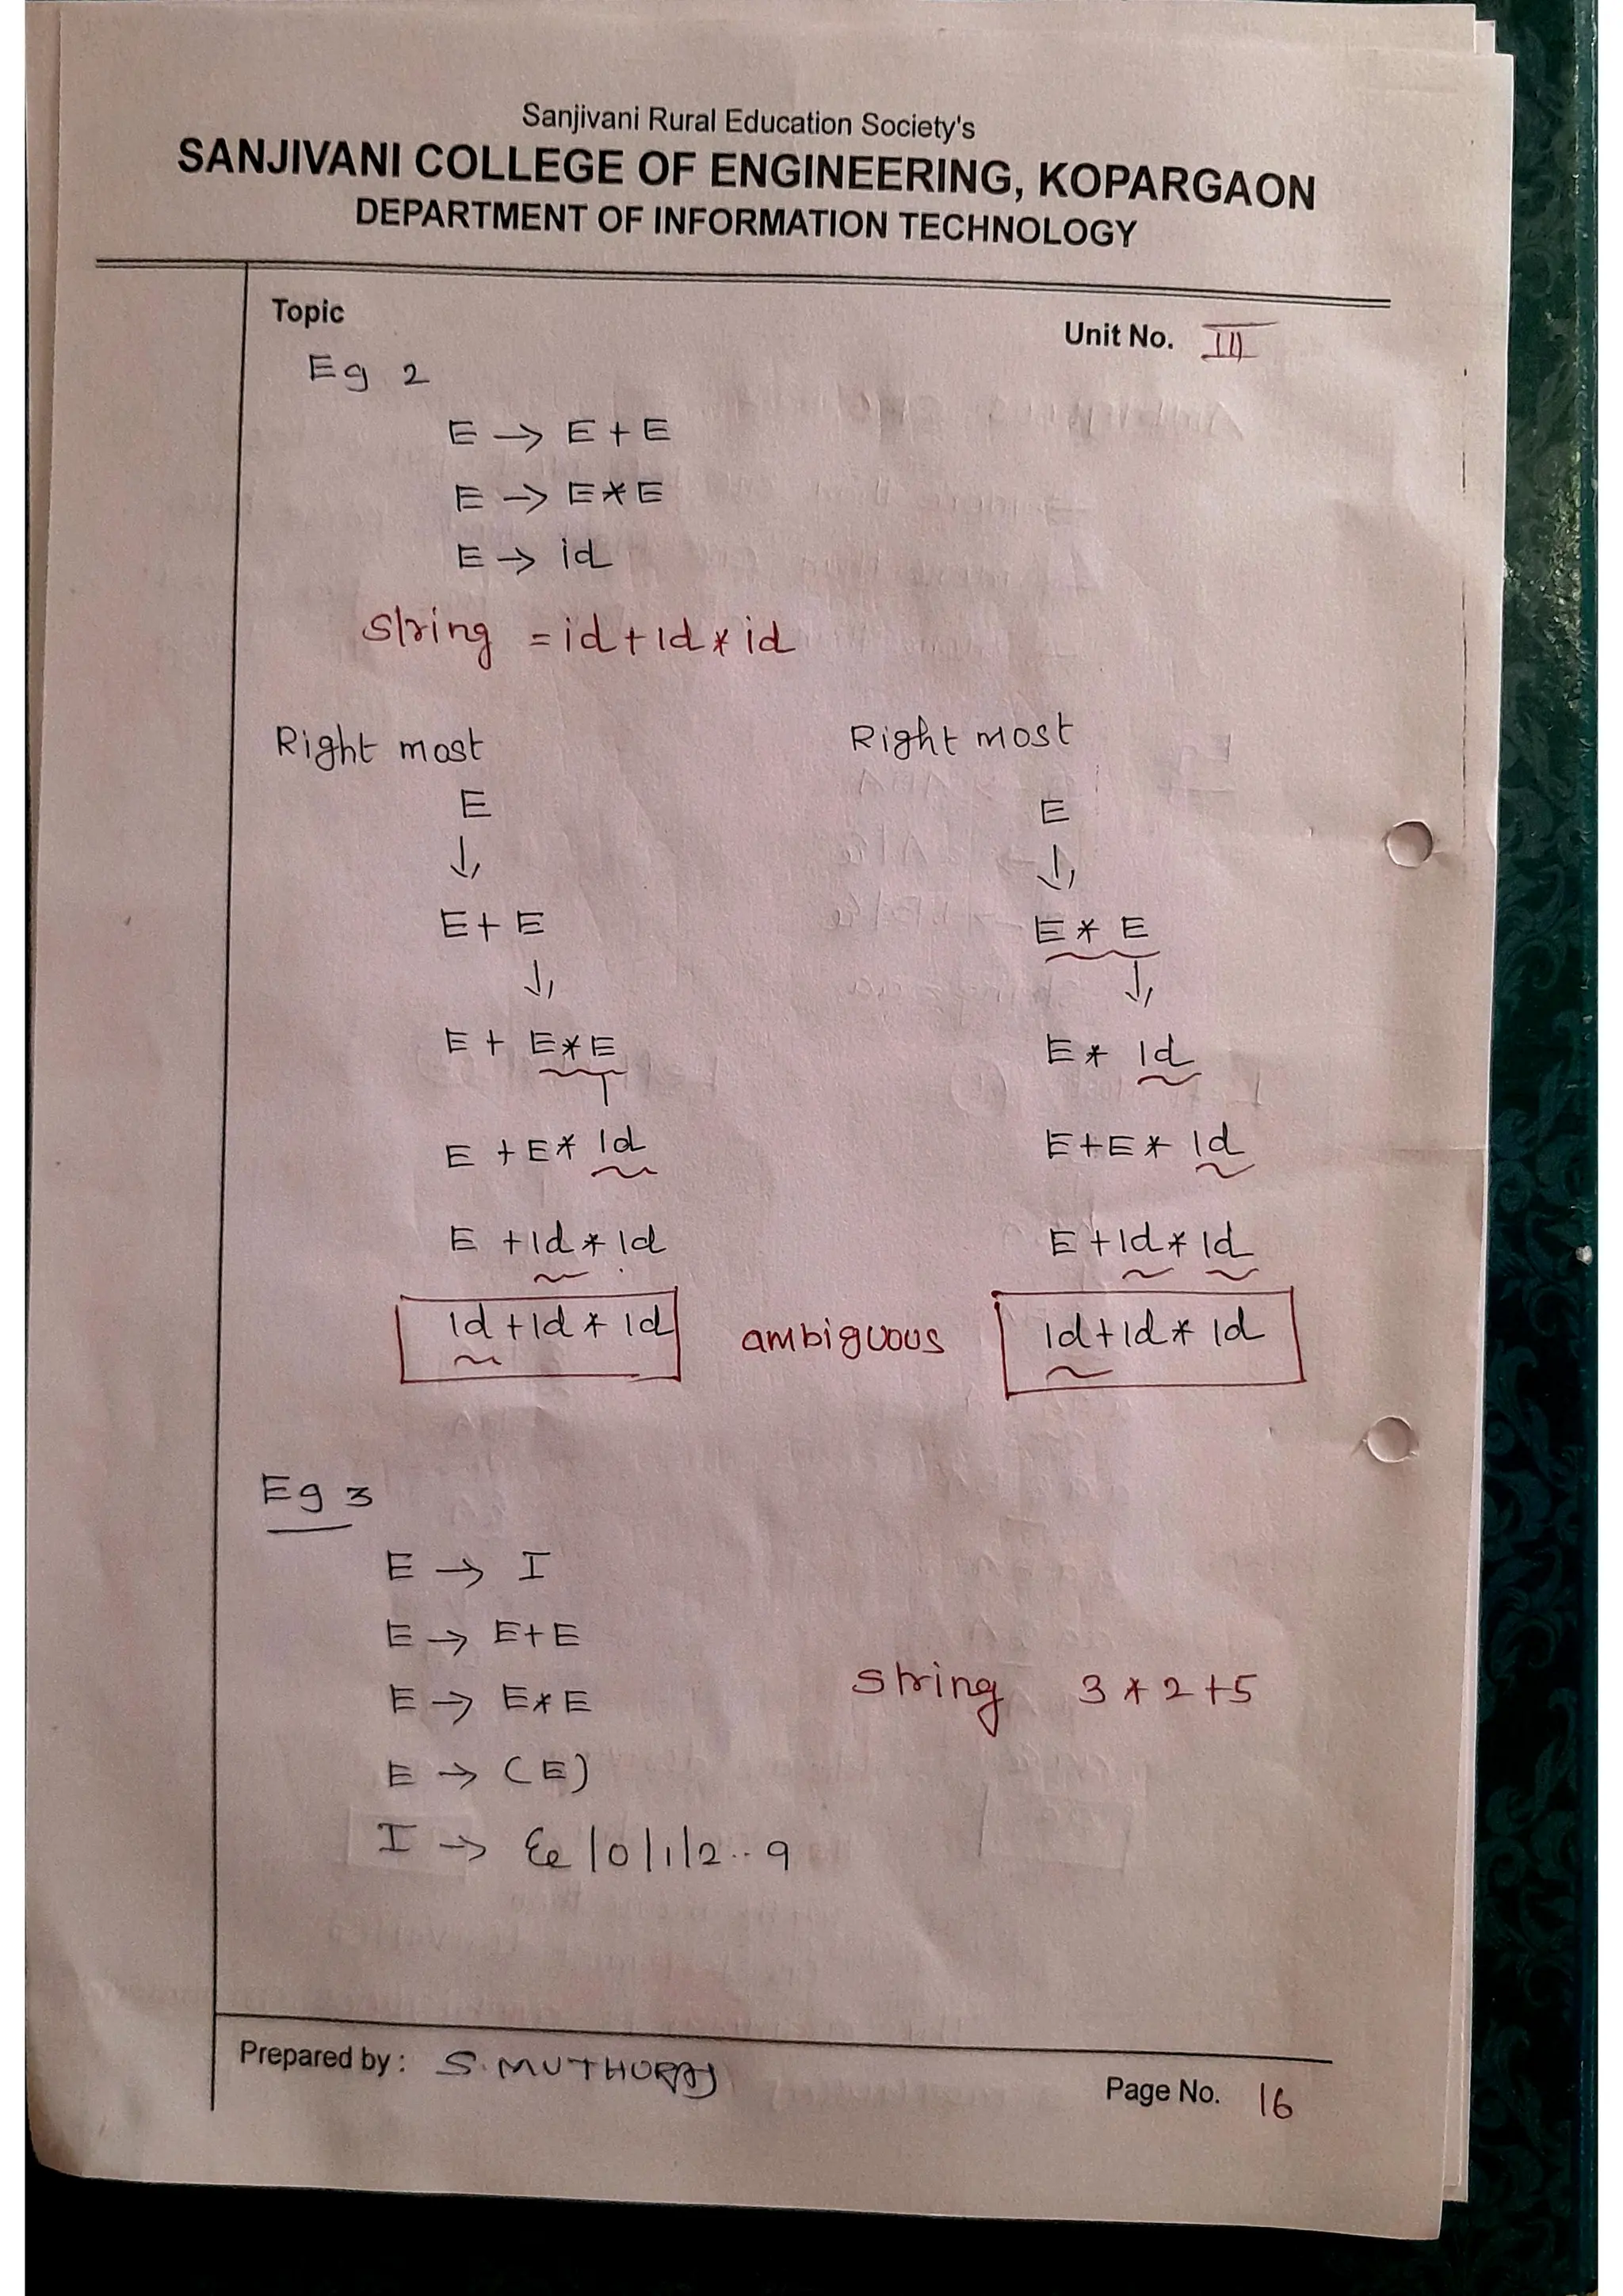 Sanjivani Rural Education Society's
SANJIVANI COLLEGE OF ENGINEERING, KOPARGAON
DEPARTMENT OF INFORMATION TECHNOLOGY
Topic
Unit No. III
Eg 2
E → E + E
E → E * E
E → id
String = id + id * id
Right most
E
↓
E + E
↓
E + E * E
E + E * id
E + id * id
id + id * id
Right most
E
↓
E * E
↓
E * id
E + E * id
E + id * id
id + id * id
ambiguous
Eg 3
E → I
E → E + E
E → E * E
E → (E)
I → ε | 0 | 1 | 2 .. 9
String 3 * 2 + 5
Prepared by : S. MUTHURAJ
Page No. 16